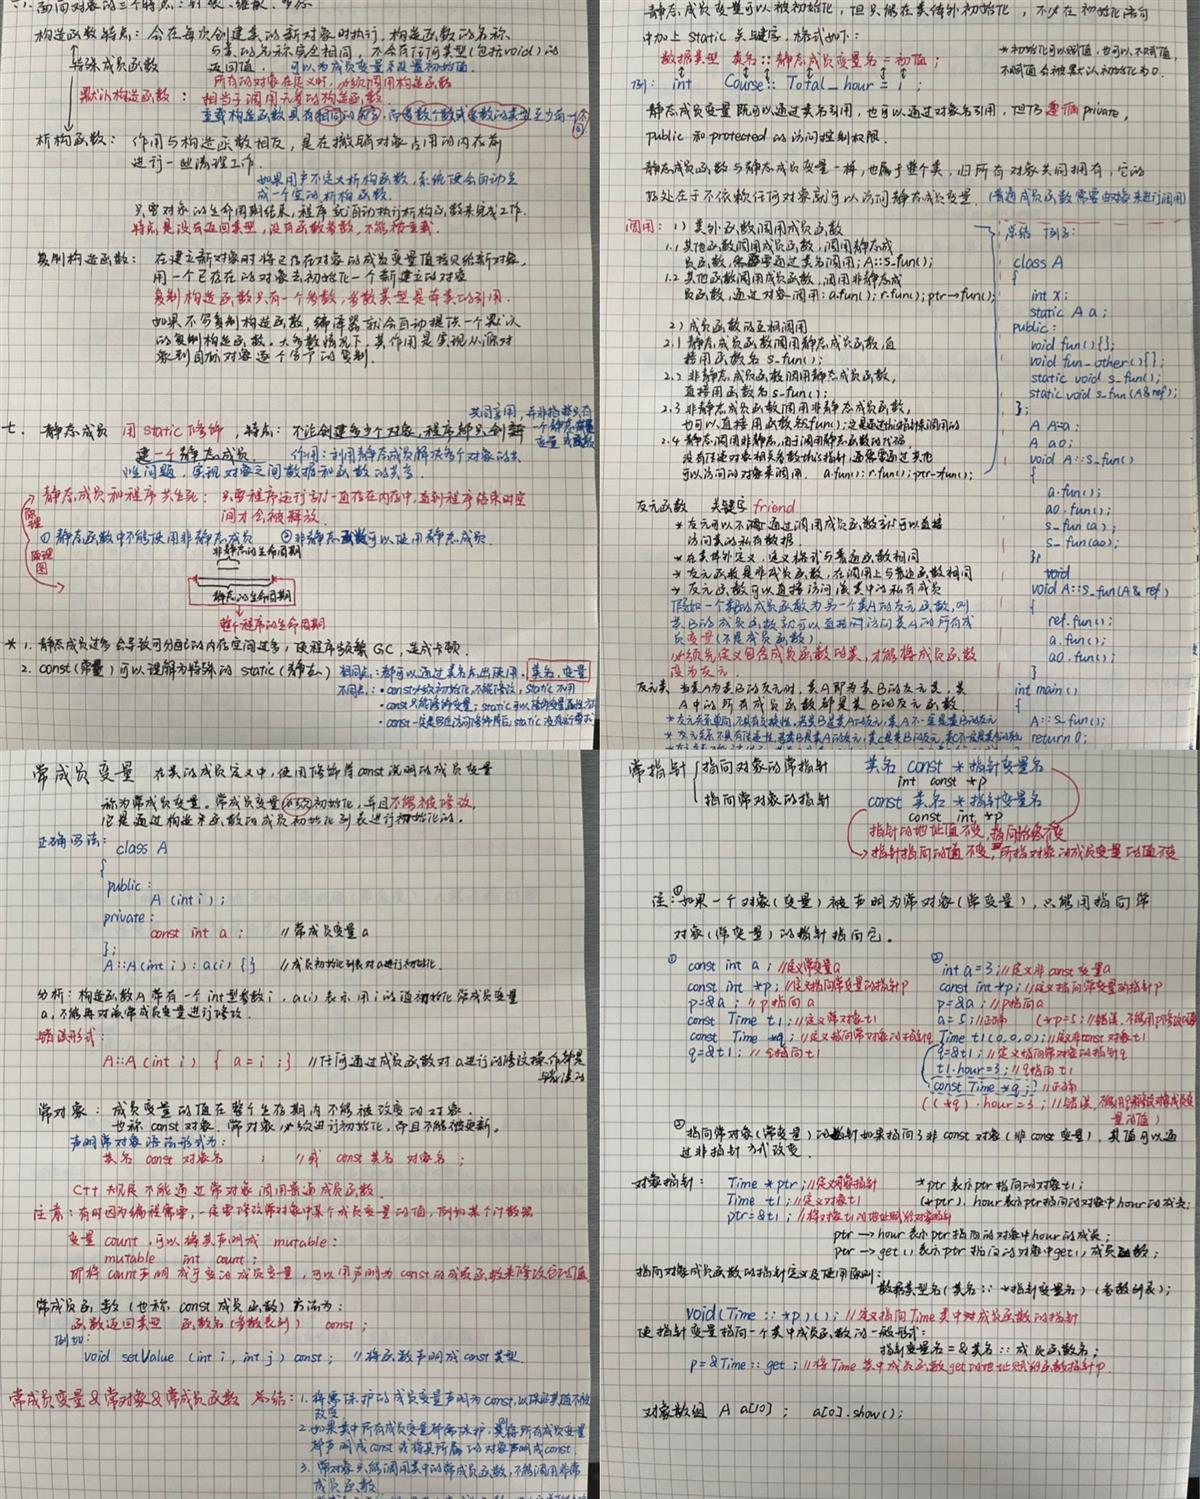 六. 面向对象的三个特点: 封装、继承、多态
构造函数特点: 会在每次创建类的新对象时执行, 构造函数的名称
特殊成员函数 与类的名称完全相同, 不会有任何类型(包括void)的
返回值. 可以为成员变量来设置初始值.
所有的对象在定义时, 必须调用构造函数
默认构造函数: 相当于调用无参的构造函数.
重载构造函数具有相同的名字, 而参数个数或参数的类型至少有一不同
析构函数: 作用与构造函数相反, 是在撤销对象占用的内存前
进行一些清理工作.
如果用户不定义析构函数, 系统便会自动生
成一个空的析构函数.
只要对象的生命周期结束, 程序就自动执行析构函数来完成工作.
特点是没有返回类型, 没有函数参数, 不能被重载.
复制构造函数: 在建立新对象时将已存在对象的成员变量值拷贝给新对象.
用一个已存在的对象去初始化一个新建立的对象
复制构造函数只有一个参数, 参数类型是本类的引用.
如果不写复制构造函数, 编译器就会自动提供一个默认
的复制构造函数. 大多数情况下, 其作用是实现从源对
象到目标对象逐个字节的复制.
共同享用, 并非指类只有
一个静态成员
变量或函数
七. 静态成员 用static修饰, 特点: 不论创建多少个对象, 程序都只创新
建一个静态成员. 作用: 利用静态成员解决多个对象的共
性问题, 实现对象之间数据和函数的共享.
静态成员和程序共生死: 只要程序运行就一直存在内存中, 直到程序结束时空
间才会被释放.
① 静态函数中不能使用非静态成员 ② 非静态函数可以使用静态成员.
原理图
非静态的生命周期
静态的生命周期
整个程序的生命周期
* 1. 静态成员过多会导致可分配的内存空间过多, 使程序频繁GC, 造成卡顿.
2. const(常量)可以理解为特殊的static(静态) 相同点: 都可以通过类名点出使用. 类名.变量
不同点: · const必须初始化, 不能修改, static不用
· const只能修饰变量; static可以修饰变量函数
静态成员变量可以被初始化, 但只能在类体外初始化, 不必在初始化语句
中加上static关键字, 格式如下:
数据类型 类名::静态成员变量名 = 初值;
* 初始化可以赋值, 也可以不赋值,
不赋值会被默认初始化为0.
例: int Course::Total_hour = 1;
静态成员变量既可以通过类名引用, 也可以通过对象名引用, 但要遵循private,
public和protected的访问控制权限.
静态成员函数与静态成员变量一样, 也属于整个类, 归所有对象共同拥有, 它的
好处在于不依赖任何对象就可以访问静态成员变量. (普通成员函数需要由对象来进行调用)
调用: 1) 类外函数调用成员函数
1.1 其他函数调用成员函数, 调用静态成
员函数, 需要通过类名调用: A::s_fun();
1.2 其他函数调用成员函数, 调用非静态成
员函数, 通过对象调用: a.fun(); r.fun(); ptr→fun();
2) 成员函数的互相调用
2.1 静态成员函数调用静态成员函数, 直
接用函数名 s_fun();
2.2 非静态成员函数调用静态成员函数,
直接用函数名 s_fun();
2.3 非静态成员函数调用非静态成员函数,
也可以直接用函数和fun(); 这是通过this指针来调用的
2.4 静态调用非静态, 由于调用静态函数的代码
没有传递对象相关参数this指针, 还需要通过其他
可以访问的对象来调用. a.fun(); r.fun(); ptr→fun();
总结 例子:
class A
{
int x;
static A a;
public:
void fun(){};
void fun_other(){};
static void s_fun();
static void s_fun(A& ref);
};
A A::a;
A a0;
void A::s_fun()
{
a.fun();
a0.fun();
s_fun(a);
s_fun(a0);
};
void
void A::s_fun(A& ref)
{
ref.fun();
a.fun();
a0.fun();
}
int main()
{
A::s_fun();
return 0;
友元函数 关键字 friend
* 友元可以不通过调用成员函数就可以直接
访问类的私有数据.
* 在类体外定义, 定义格式与普通函数相同
* 友元函数是非成员函数, 在调用上与普通函数相同
* 友元函数可以直接访问该类中的私有成员
假如一个类B的成员函数为另一个类A的友元函数, 则
类B的成员函数就可以直接访问类A的所有成
员变量(不是成员函数).
必须先定义包含成员函数的类, 才能将成员函数
设为友元.
友元类 当类A为类B的友元时, 类A即为类B的友元类, 类
A中的所有成员函数都是类B的友元函数.
* 友元关系单向, 不具有交换性. 若类B是类A的友元, 类A不一定是类B的友元
常成员变量 在类的成员定义中, 使用修饰符const说明的成员变量
称为常成员变量. 常成员变量必须初始化, 并且不能被修改,
它是通过构造函数的成员初始化列表进行初始化的.
正确写法: class A
{
public:
A(int i);
private:
const int a; //常成员变量a
};
A::A(int i): a(i) {} //成员初始化列表对a进行初始化.
分析: 构造函数A带有一个int型参数i, a(i)表示用i的值初始化常成员变量
a, 不能再对该常成员变量进行修改.
错误形式:
A::A(int i) { a = i; } //任何通过成员函数对a进行的修改操作都是
错误的
常对象: 成员变量的值在整个生存期内不能被改变的对象.
也称const对象. 常对象必须进行初始化, 而且不能被更新.
声明常对象语法形式为:
类名 const 对象名; //或 const 类名 对象名;
C++规定不能通过常对象调用普通成员函数.
注意: 有时因为编程需要, 一定要修改常对象中某个成员变量的值, 例如某个计数器
变量count, 可以将其声明成 mutable:
mutable int count;
即将count声明成可变的成员变量, 可以用声明为const的成员函数来修改它的值
常成员函数(也称const成员函数)方法为:
函数返回类型 函数名(参数表列) const;
例如:
void setValue (int i, int j) const; //将函数声明成const类型.
常成员变量&常对象&常成员函数 总结: 1. 将需保护的成员变量声明为const, 以保证其值不被
改变
2. 如果类中所有成员变量都需保护, 则将所有成员变量
都声明成const或将其所属的对象声明成const.
3. 常对象只能调用类中的常成员函数, 不能调用非常
成员函数
常指针 指向对象的常指针 类名 const * 指针变量名
int const *p
指向常对象的指针 const 类名 * 指针变量名
const int *p
指针的地址值不变, 指向始终不变
指针指向的值不变, 所指对象的成员变量的值不变
注: ① 如果一个对象(变量)被声明为常对象(常变量), 只能用指向常
对象(常变量)的指针指向它.
① const int a; //定义常变量a
const int *p; //定义指向常变量的指针p
p=&a; //p指向a
const Time t1; //定义常对象t1
const Time *q; //定义指向常对象的指针q
q=&t1; //q指向t1
② int a=3; //定义非const变量a
const int *p; //定义指向常变量的指针p
p=&a; //p指向a
a=5; //正确 (*p=5; //错误, 不能用p修改
Time t1(0,0,0); //定义非const对象t1
q=&t1; //定义指向常对象的指针q
t1.hour=3; //q指向t1
const Time *q; //正确
((*q).hour=3; //错误, 不能用q修改对象成员变
量的值)
② 指向常对象(常变量)的指针如果指向了非const对象(非const变量), 其值可以通
过非指针方式改变.
对象指针: Time *ptr; //定义对象指针 *ptr表示ptr指向的对象t1
Time t1; //定义对象t1 (*ptr).hour表示ptr指向的对象中hour的成员;
ptr=&t1; //将对象t1的地址赋给对象指针
ptr→hour表示ptr指向的对象中hour的成员;
ptr→get()表示ptr指向的对象中get()成员函数;
指向对象成员函数的指针定义及使用原则:
数据类型名(类名::*指针变量名)(参数列表);
void(Time::*p)(); //定义指向Time类中对成员函数的指针
使指针变量指向一个类中成员函数的一般形式:
指针变量名=&类名::成员函数名;
p=&Time::get; //将Time类中成员函数get的地址赋给函数指针p.
对象数组 A a[10]; a[0].show();